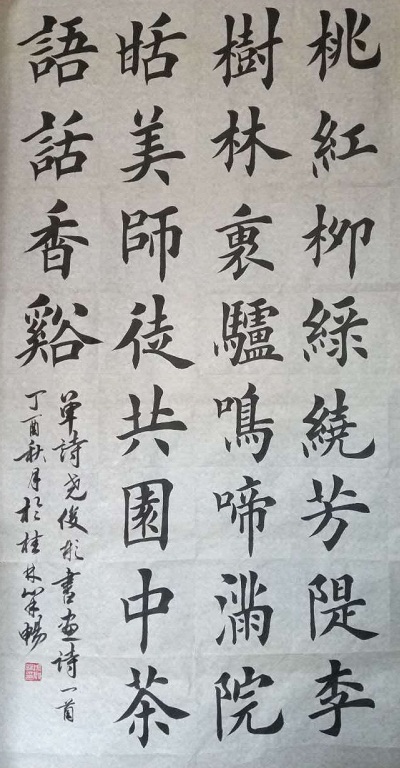 桃紅柳綠繞芳隄李
樹林裏驢鳴啼滿院
美師徒共園中茶
語話香谿
單詩尧俊彬書画詩一首
丁酉秋月於桂林 暢